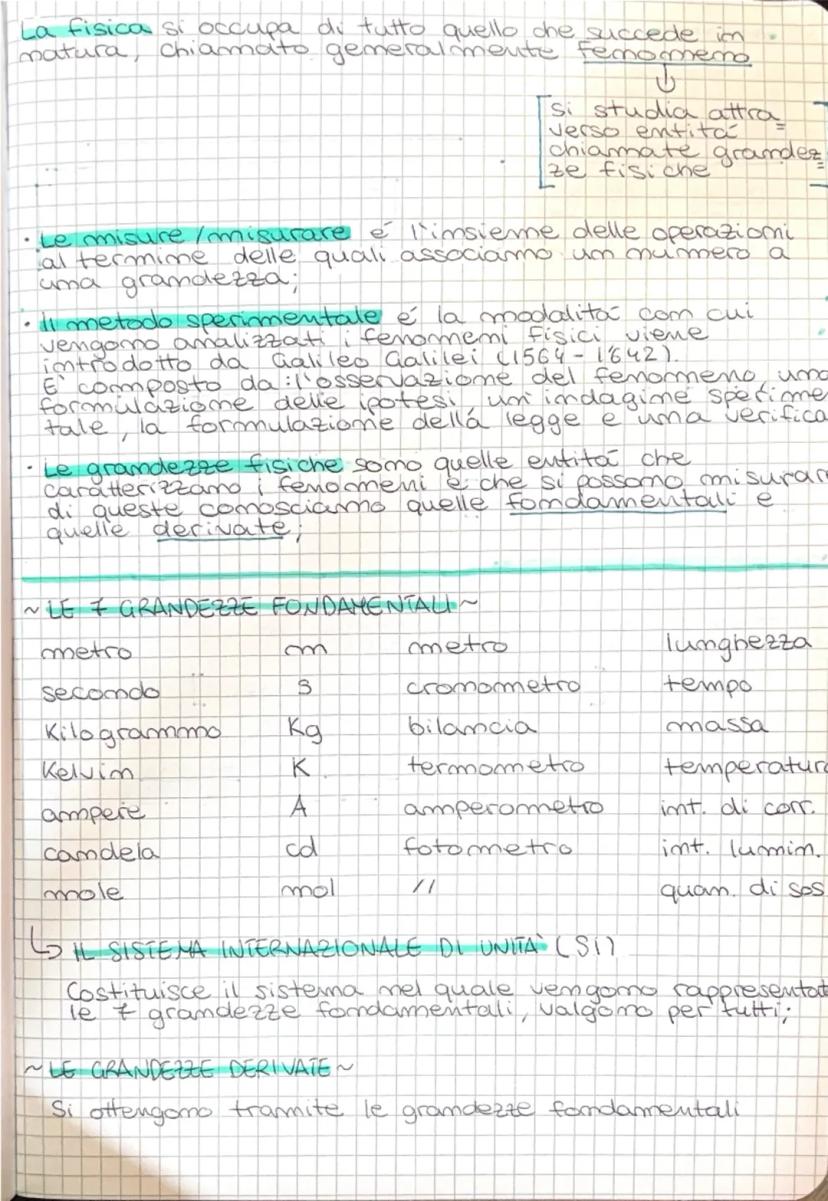 La fisica si occupa di tutto quello che succede in
natura, chiamato generalmente fenomeno
si studia attra
verso entità
chiamate grandez
ze fisiche
· Le misure/misurare é l'insieme delle operazioni
al termine delle quali associamo un numero a
una grandezza;
· Il metodo sperimentale é la modalitá con cui
vengono analizzati i fenomeni fisici viene
introdotto da Galileo Galilei (1564-1642).
E' composto da: l'osservazione del fenomeno, una
formulazione delle ipotesi, un'indagine sperime
tale, la formulazione della legge e una verifica
· Le grandezze fisiche sono quelle entitá che
caratterizzano i fenomeni e che si possono misurar
di queste conosciamo quelle fondamentali e
quelle derivate;
~ LE 7 GRANDEZZE FONDAMENTALI ~
metro m metro lunghezza
secondo s cronometro tempo
Kilogrammo Kg bilancia massa
Kelvin K termometro temperatura
ampere A amperometro int. di corr.
candela cd fotometro int. lumin.
mole mol // quan. di sos
↳ IL SISTEMA INTERNAZIONALE DI UNITA' (SI)
Costituisce il sistema nel quale vengono rappresentat
le 7 grandezze fondamentali, valgono per tutti;
~ LE GRANDEZZE DERIVATE ~
Si ottengono tramite le grandezze fondamentali